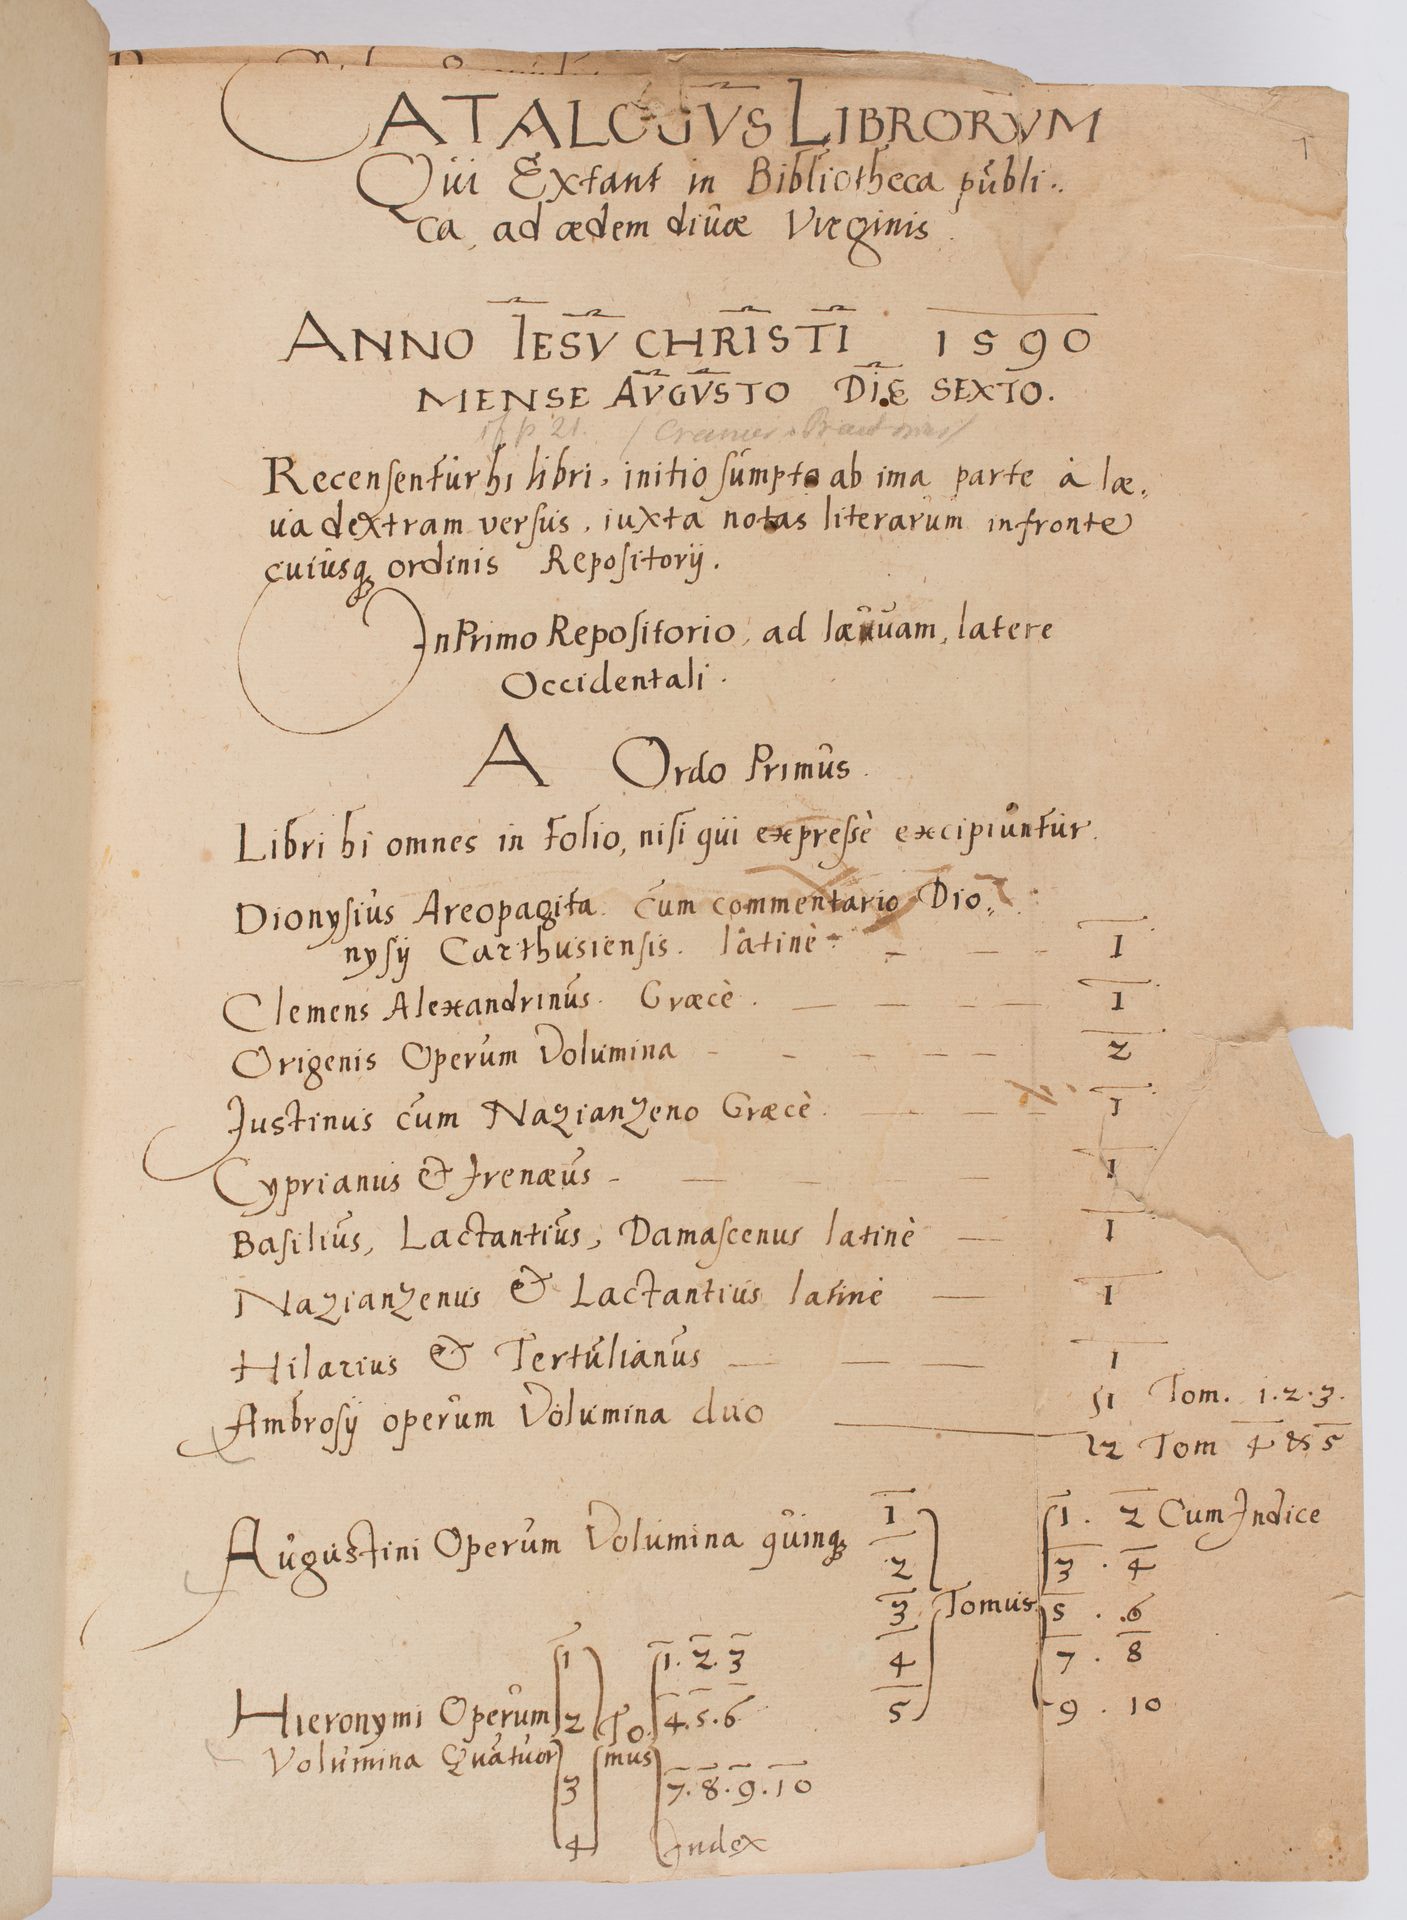 CATALOGVS LIBRORVM
Qui Extant in Bibliotheca publi..
ca, ad ædem divæ Virginis.
ANNO IESV CHRISTI 1590
MENSE AVGVSTO DIE SEXTO.
Recensentur hi libri, initio sumpto ab ima parte à læ,,
va dextram versus, iuxta notas literarum in fronte
cuiusq; ordinis Repositorij.
In Primo Repositorio, ad lævam, latere
Occidentali.
A Ordo Primus.
Libri hi omnes in folio, nisi qui expressè excipiuntur.
Dionysius Areopagita. cum commentario Dio,,
nysij Carthusiensis. latinè. 1
Clemens Alexandrinus. Græcè. 1
Origenis Operum Volumina 2
Justinus cum Nazianzeno Græcè. 1
Cyprianus & Irenæus 1
Basilius, Lactantius, Damascenus latinè 1
Nazianzenus & Lactantius latinè 1
Hilarius & Tertulianus 1
Ambrosij operum Volumina duo 1 Tom. 1.2.3.
2 Tom 4 & 5
Augustini Operum Volumina quinq; 1 2 3 4 5 Tomus 1. 2 Cum Indice
3 . 4
5 . 6
7 . 8
9 . 10
Hieronymi Operum
Volumina Quatuor 1 2 3 4 To mus 1.2.3
4.5.6
7.8.9.10
Index